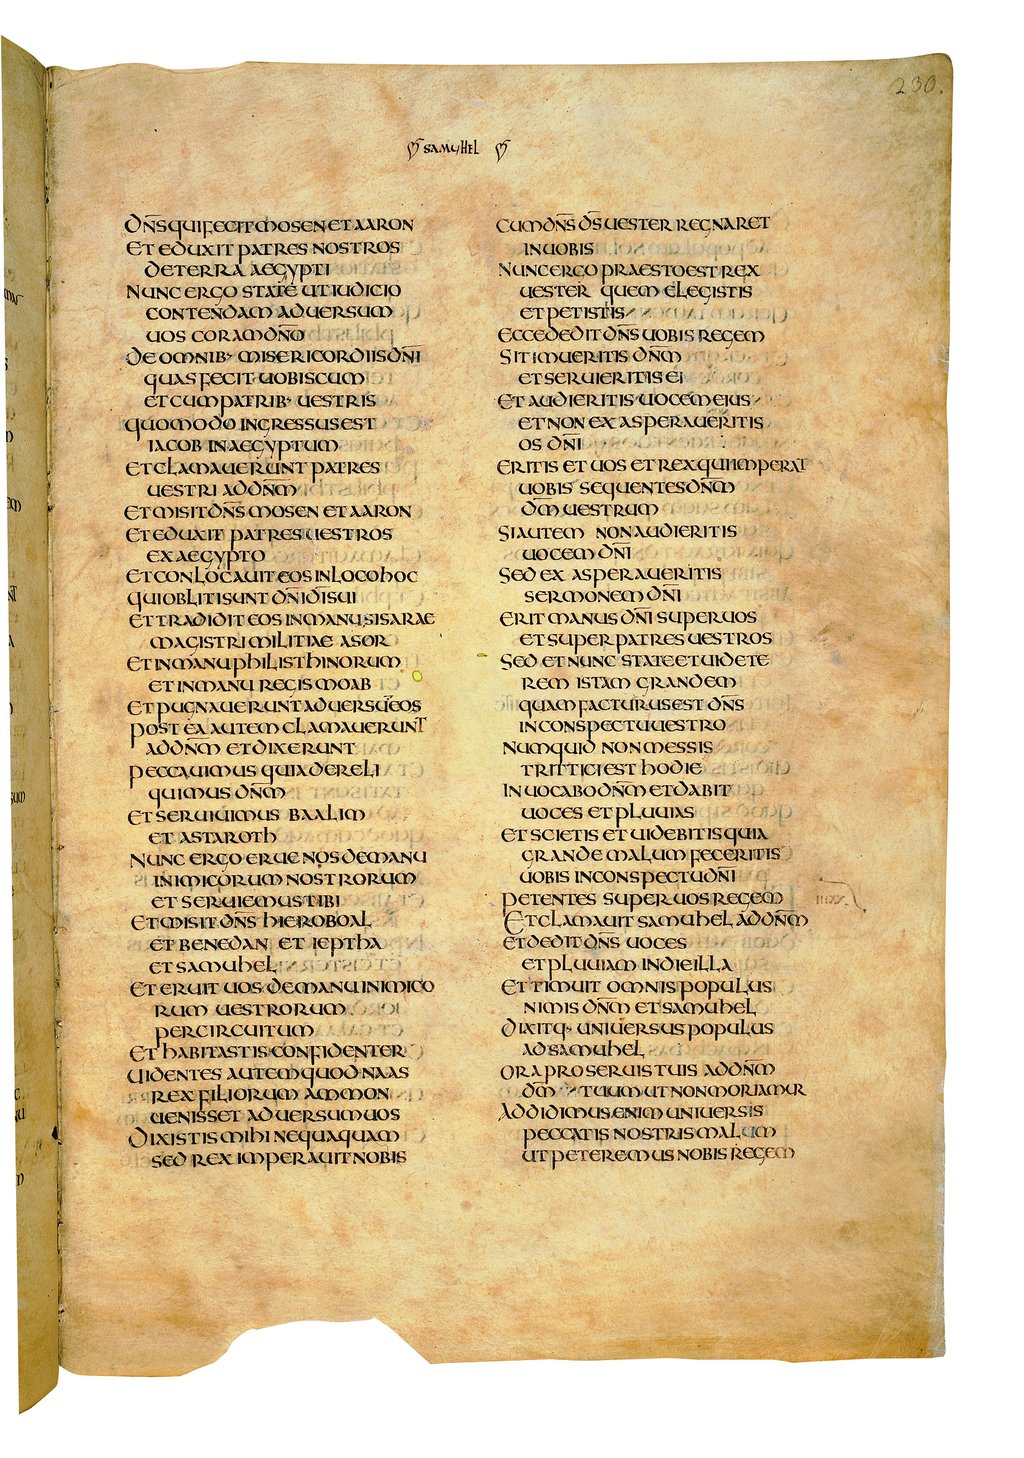 230.
SAMUHEL
DN̄S QUI FECIT MOSEN ET AARON
ET EDUXIT PATRES NOSTROS
DE TERRA AEGYPTI
NUNC ERGO STATE UT IUDICIO
CONTENDAM ADVERSUM
UOS CORAM DN̄O
DE OMNIB· MISERICORDIIS DN̄I
QUAS FECIT UOBISCUM
ET CUM PATRIB· UESTRIS
QUOMODO INGRESSUS EST
IACOB IN AEGYPTUM
ET CLAMAUERUNT PATRES
UESTRI AD DN̄M
ET MISIT DN̄S MOSEN ET AARON
ET EDUXIT PATRES UESTROS
EX AEGYPTO
ET CONLOCAUIT EOS IN LOCO HOC
QUI OBLITI SUNT DN̄I DĪ SUI
ET TRADIDIT EOS IN MANU SISARAE
MAGISTRI MILITIAE ASOR
ET IN MANU PHILISTHINORUM
ET IN MANU REGIS MOAB
ET PUGNAUERUNT ADUERSU̅ EOS
POST EA AUTEM CLAMAUERUNT
AD DN̄M ET DIXERUNT
PECCAUIMUS QUIA DERELI
QUIMUS DN̄M
ET SERUIUIMUS BAALIM
ET ASTAROTH
NUNC ERGO ERUE NOS DE MANU
INIMICORUM NOSTRORUM
ET SERUIEMUS TIBI
ET MISIT DN̄S HIEROBOAL
ET BENEDAN ET IEPTHA
ET SAMUHEL
ET ERUIT UOS DE MANU INIMICO
RUM UESTRORUM
PER CIRCUITUM
ET HABITASTIS CONFIDENTER
UIDENTES AUTEM QUOD NAAS
REX FILIORUM AMMON
UENISSET ADUERSUM UOS
DIXISTIS MIHI NEQUAQUAM
SED REX IMPERAUIT NOBIS
CUM DN̄S DS̄ UESTER REGNARET
IN UOBIS
NUNC ERGO PRAESTO EST REX
UESTER QUEM ELEGISTIS
ET PETISTIS
ECCE DEDIT DN̄S UOBIS REGEM
SI TIMUERITIS DN̄M
ET SERUIERITIS EI
ET AUDIERITIS UOCEM EIUS
ET NON EXASPERAUERITIS
OS DN̄I
ERITIS ET UOS ET REX QUI IMPERAT
UOBIS SEQUENTES DN̄M
DM̄ UESTRUM
SI AUTEM NON AUDIERITIS
UOCEM DN̄I
SED EXASPERAUERITIS
SERMONEM DN̄I
ERIT MANUS DN̄I SUPER UOS
ET SUPER PATRES UESTROS
SED ET NUNC STATE ET UIDETE
REM ISTAM GRANDEM
QUAM FACTURUS EST DN̄S
IN CONSPECTU UESTRO
NUMQUID NON MESSIS
TRITTICI EST HODIE
INUOCABO DN̄M ET DABIT
UOCES ET PLUUIAS
ET SCIETIS ET UIDEBITIS QUIA
GRANDE MALUM FECERITIS
UOBIS IN CONSPECTU DN̄I
PETENTES SUPER UOS REGEM
ET CLAMAUIT SAMUHEL AD DN̄M
ET DEDIT DN̄S UOCES
ET PLUUIAM IN DIE ILLA
ET TIMUIT OMNIS POPULUS
NIMIS DN̄M ET SAMUHEL
DIXITQ· UNIUERSUS POPULUS
AD SAMUHEL
ORA PRO SERUIS TUIS AD DN̄M
DM̄ TUUM UT NON MORIAMUR
ADDIDIMUS ENIM UNIUERSIS
PECCATIS NOSTRIS MALUM
UT PETEREMUS NOBIS REGEM